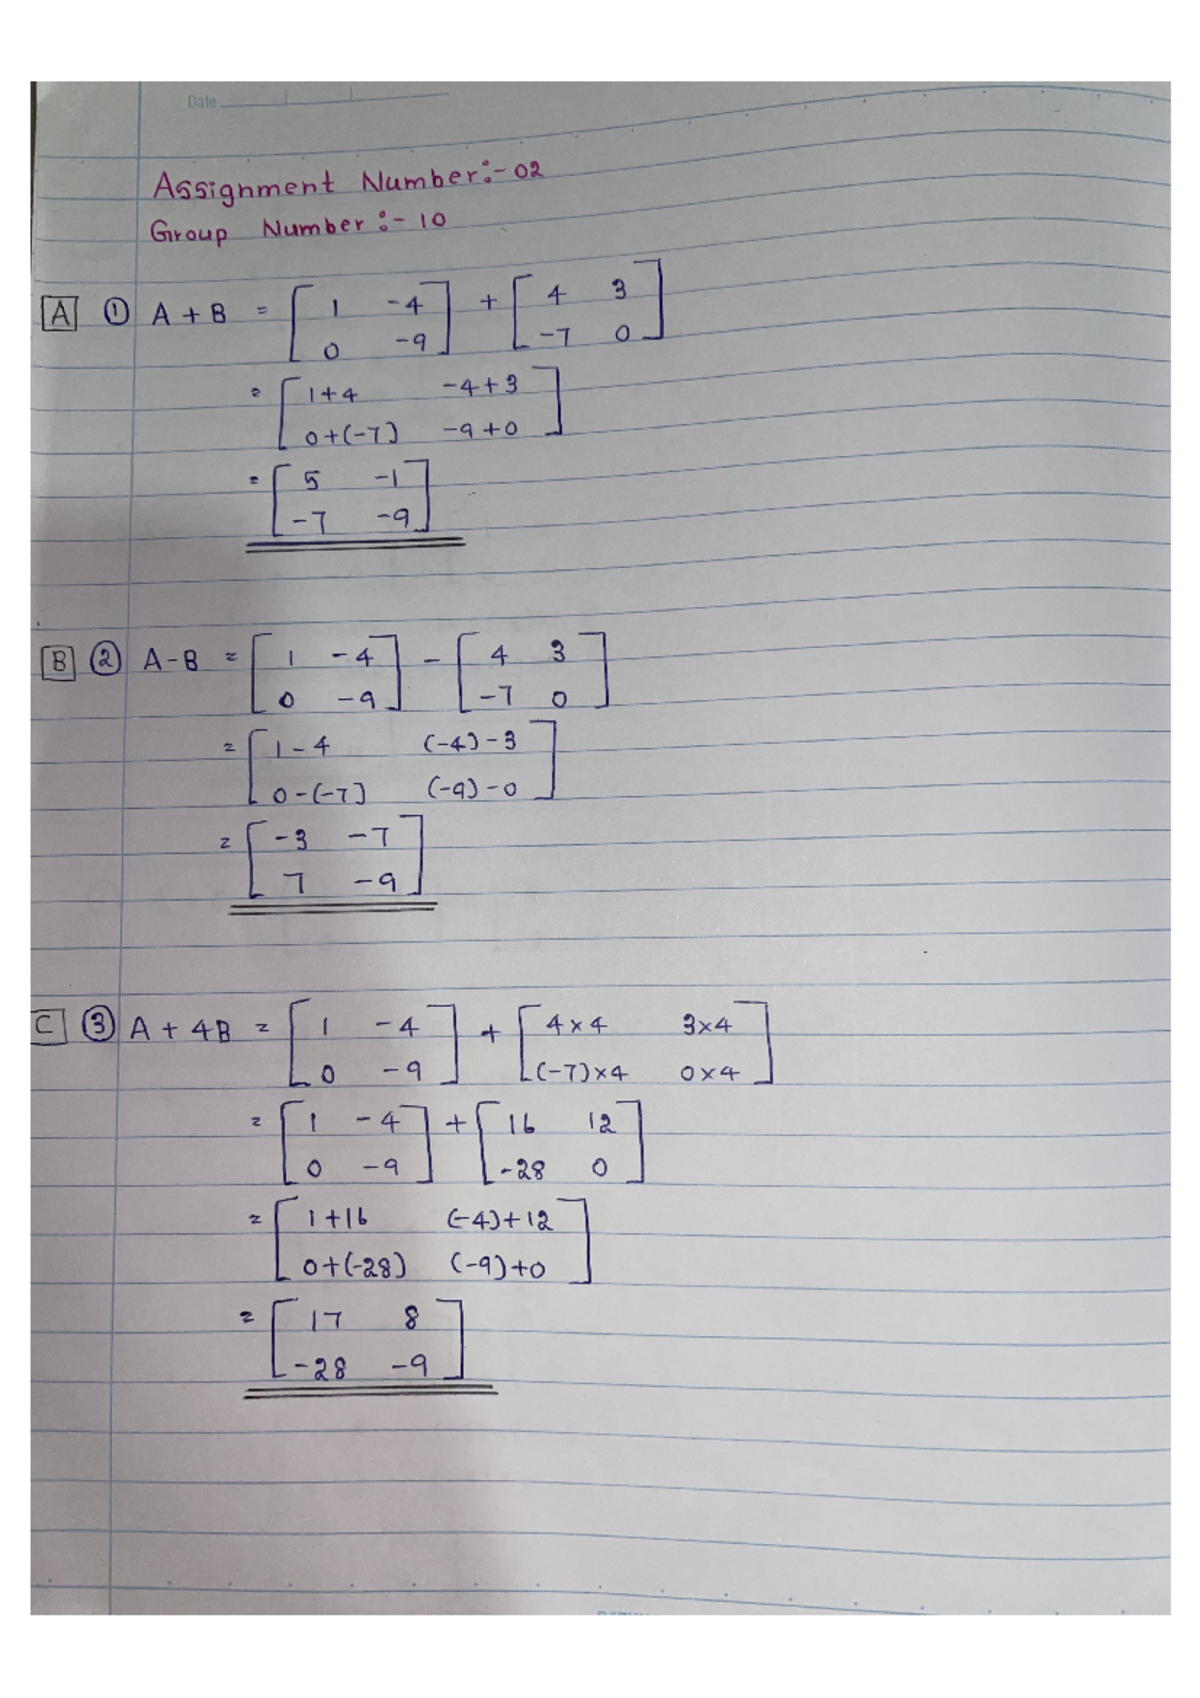 Date
Assignment Number:- 02
Group Number :- 10
A ① A + B = [ 1 -4 ] + [ 4 3 ]
[ 0 -9 ] [ -7 0 ]
= [ 1+4 -4+3 ]
[ 0+(-7) -9+0 ]
= [ 5 -1 ]
[ -7 -9 ]
B ② A-B = [ 1 -4 ] - [ 4 3 ]
[ 0 -9 ] [ -7 0 ]
= [ 1-4 (-4)-3 ]
[ 0-(-7) (-9)-0 ]
= [ -3 -7 ]
[ 7 -9 ]
C ③ A + 4B = [ 1 -4 ] + [ 4×4 3×4 ]
[ 0 -9 ] [ (-7)×4 0×4 ]
= [ 1 -4 ] + [ 16 12 ]
[ 0 -9 ] [ -28 0 ]
= [ 1+16 (-4)+12 ]
[ 0+(-28) (-9)+0 ]
= [ 17 8 ]
[ -28 -9 ]